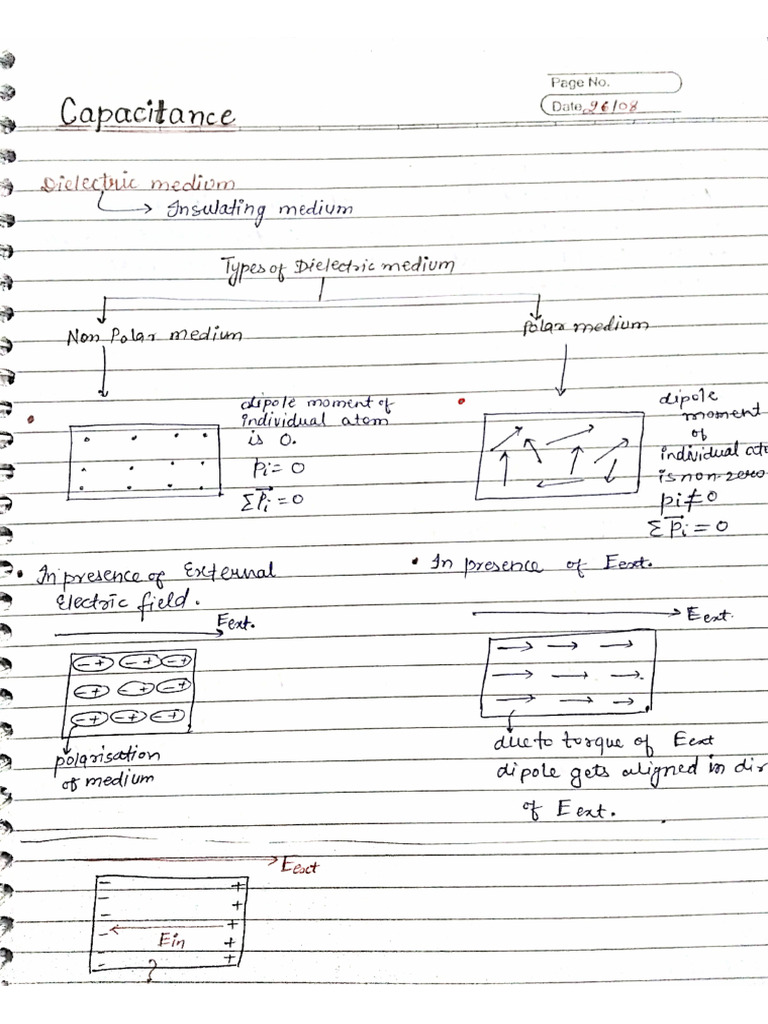 Page No.
Date 26/08
Capacitance
Dielectric medium
Insulating medium
Types of Dielectric medium
Non Polar medium
Polar medium
dipole moment of
individual atom
is 0.
pi = 0
ΣPi = 0
dipole
moment
of
individual ato
is non-zero
pi ≠ 0
ΣPi = 0
• In presence of External
Electric field.
Eext.
- + - + - +
- + - + - +
- + - + - +
polarisation
of medium
• In presence of Eext.
Eext.
due to torque of Eext
dipole gets aligned in dir
of Eext.
Eext
Ein